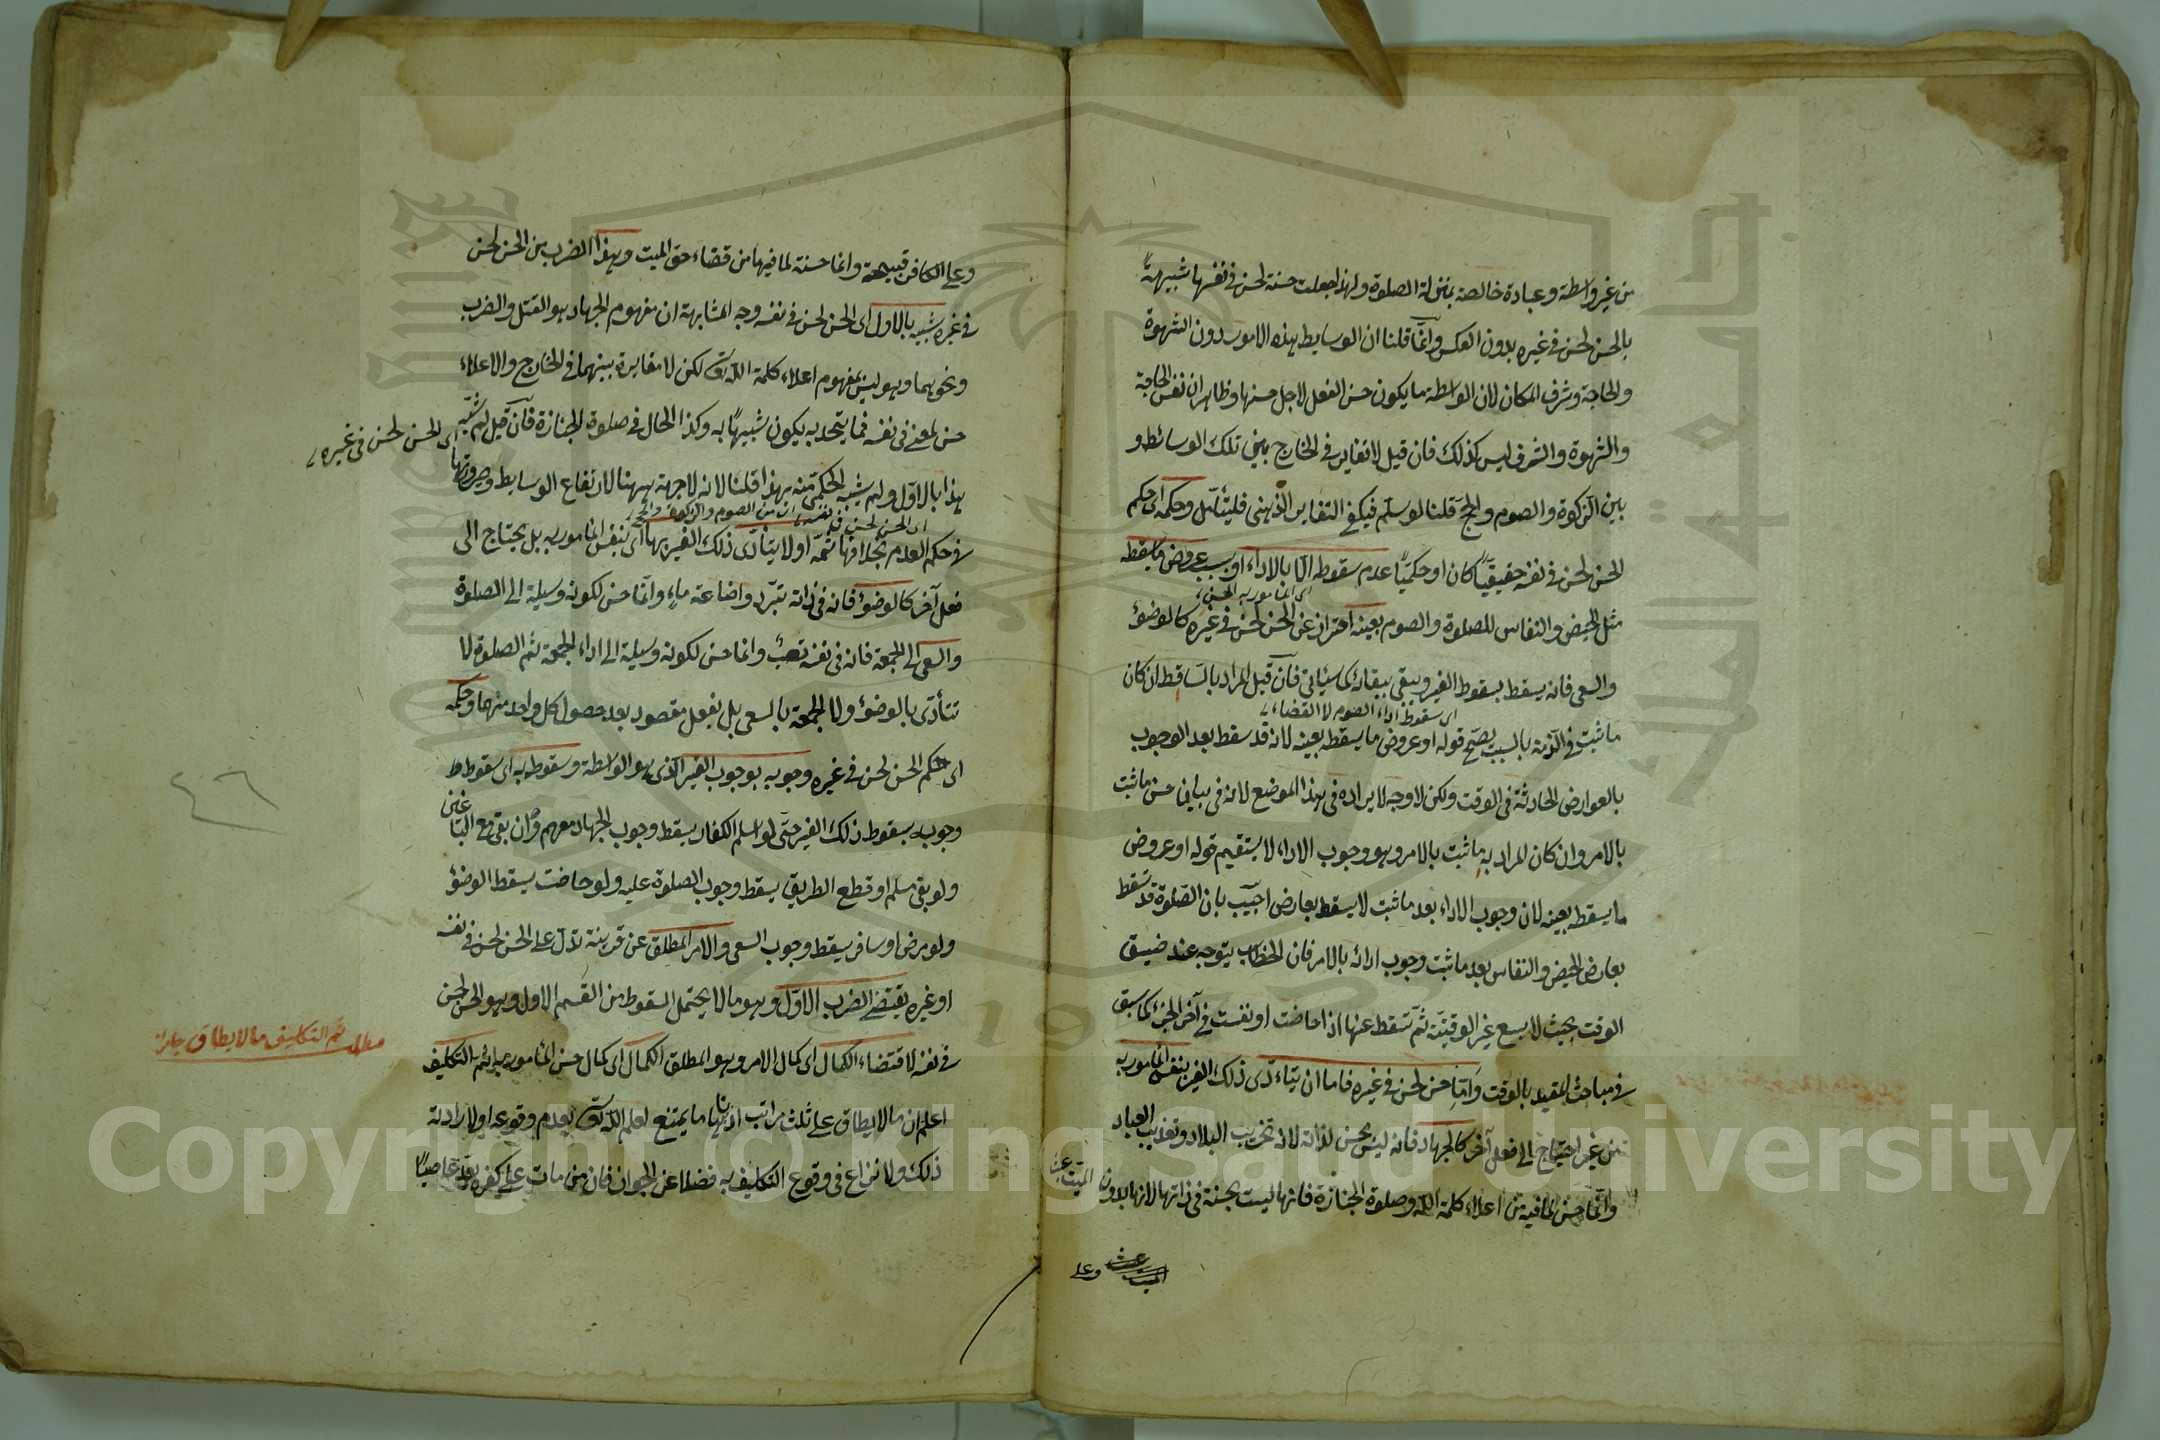 من غير واسطة وعبادة خالصة بمنزلة الصلوة ولهذا جعلت حسنة لحسن في نفسها شبيهة
بالحسن لحسن في غيره بدون العكس وانّما قلنا ان الوسايط هذه الامور دون الشهوة
والحاجة وشرف المكان لان الواسطة ما يكون حسن الفعل لاجل حسنها وظاهر ان نفس الحاجة
والشهوة والشرف ليس كذلك فان قيل لا تغاير في الخارج بين تلك الوسائط و
بين الزكوة والصوم والحج قلنا لو سلم فيكفى التغاير الذهنى فليتأمل وحكمه اى حكم
الحسن لحسن في نفسه حقيقيّا كان او حكميّا عدم سقوطه الّا بالاداء او بسبب عروض ما يسقطه
اى المأمور به الحسن
مثل الحيض والنفاس للصلوة والصوم بعينه احتراز عن الحسن لحسن في غيره كالوضوء
والسعى فانه يسقط بسقوط الغير ويبقى ببقائه كما سيأتى فان قيل المراد بالساقط ان كان
اى سقوط اداء الصوم لا القضاء
ما ثبت في الذمة بالسبب يصحّ قوله او عروض ما يسقطه بعينه لانه قد سقط بعد الوجوب
بالعوارض الحادثة في الوقت ولكن لا وجه لايراده في هذا الموضع لانه في بيان حسن ما ثبت
بالامر وان كان المراد به ما ثبت بالامر وهو وجوب الاداء لا يستقيم قوله او عروض
ما يسقطه بعينه لان وجوب الاداء بعد ما ثبت لا يسقط بعارض اجيب بان الصّلوة قد تسقط
بعارض الحيض والنفاس بعد ما ثبت وجوب ادائه بالامر فان الخطاب يتوجه عند ضيق
الوقت بحيث لا يسع غير الوقتيّة ثمّ تسقط عنها اذا حاضت او نفست في آخر الجزء كما سبق
في مباحث المقيد بالوقت وامّا حسن لحسن في غيره فاما ان يتأدّى ذلك الغير بنفس المأمور به
من غير احتياج الى فعل آخر كالجهاد فانه ليس بحسن لذاته لانه تخريب البلاد وتعذيب العباد
وانّما حسن لما فيه من اعلاء كلمة الله وصلوة الجنازة فانها ليست بحسنة في ذاتها لانها بدون الميت عبث
وعلى
وعلى الكافر قبيحة وانما حسنة لما فيها من قضاء حق الميت وهذا الضرب من الحسن لحسن
في غيره شبيه بالاول اى الحسن لحسن في نفسه وجه المشابهة ان مفهوم الجهاد هو القتل والضرب
ونحوهما وهو ليس مفهوم اعلاء كلمة الله تعالى لكن لا مغايرة بينهما في الخارج والاعلاء
حسن لمعنى في نفسه فما يتحد به يكون شبيهًا به وكذا الحال في صلوة الجنازة فان قيل لم شبّه
اى الحسن لحسن في غيره
هذا بالاوّل ولم يشبه الحكمى منه بهذا قلنا لانه لا جهة ههنا لارتفاع الوسايط وصيرورتها
اى الحسن لحسن في نفسه من الصوم والزكوة والحج
في حكم العدم بخلافها ثمّه او لا يتأدّى ذلك الغير بها اى بنفس المأمور به بل يحتاج الى
فعل آخر كالوضوء فانه في ذاته تبرّد واضاعة ماء وانّما حسن لكونه وسيلة الى الصلوة
والسعى الى الجمعة فانه في نفسه تعب وانما حسن لكونه وسيلة الى اداء الجمعة ثم الصلوة لا
تتأدّى بالوضوء ولا الجمعة بالسعى بل بفعل مقصود بعد حصول كل واحد منهما وحكمه
اى حكم الحسن لحسن في غيره وجوبه بوجوب الغير الذى هو الواسطة وسقوطه به اى سقوط
وجوبه بسقوط ذلك الغير حتّى لو اسلم الكفار يسقط وجوب الجهاد معهم وان بقى مع الباغين
ولو بقى مسلم او قطع الطريق يسقط وجوب الصلوة عليه ولو حاضت يسقط الوضوء
ولو مرض او سافر يسقط وجوب السعى والامر المطلق عن قرينة تدلّ على الحسن لحسن في نفسه
او غيره يقتضى الضرب الاوّل وهو ما لا يحتمل السقوط من القسم الاول وهو الحسن لحسن
في نفسه لاقتضاء الكمال اى كمال الامر وهو المطلق الكمال اى كمال حسن المأمور به ثم التكليف
مطلب ثم التكليف ما لا يطاق جائز
اعلم ان ما لا يطاق على ثلث مراتب ادناها ما يمتنع لعلم الله تعالى بعدم وقوعه او لارادته
ذلك ولا نزاع في وقوع التكليف به فضلا عن الجواز فان من مات على كفره يعدّ عاصيًا
Copyright © King Saud University